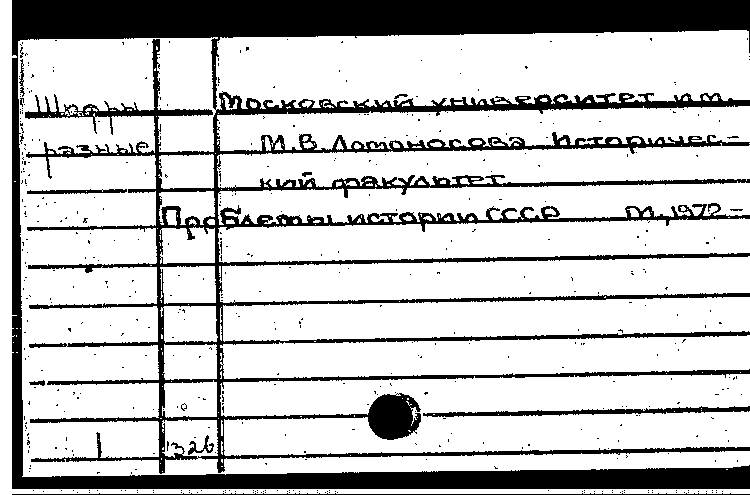 Шифры Московский университет им.
разные М.В.Ломоносова Историчес-
кий факультет
Проблемы истории СССР М.,1972-
1 326